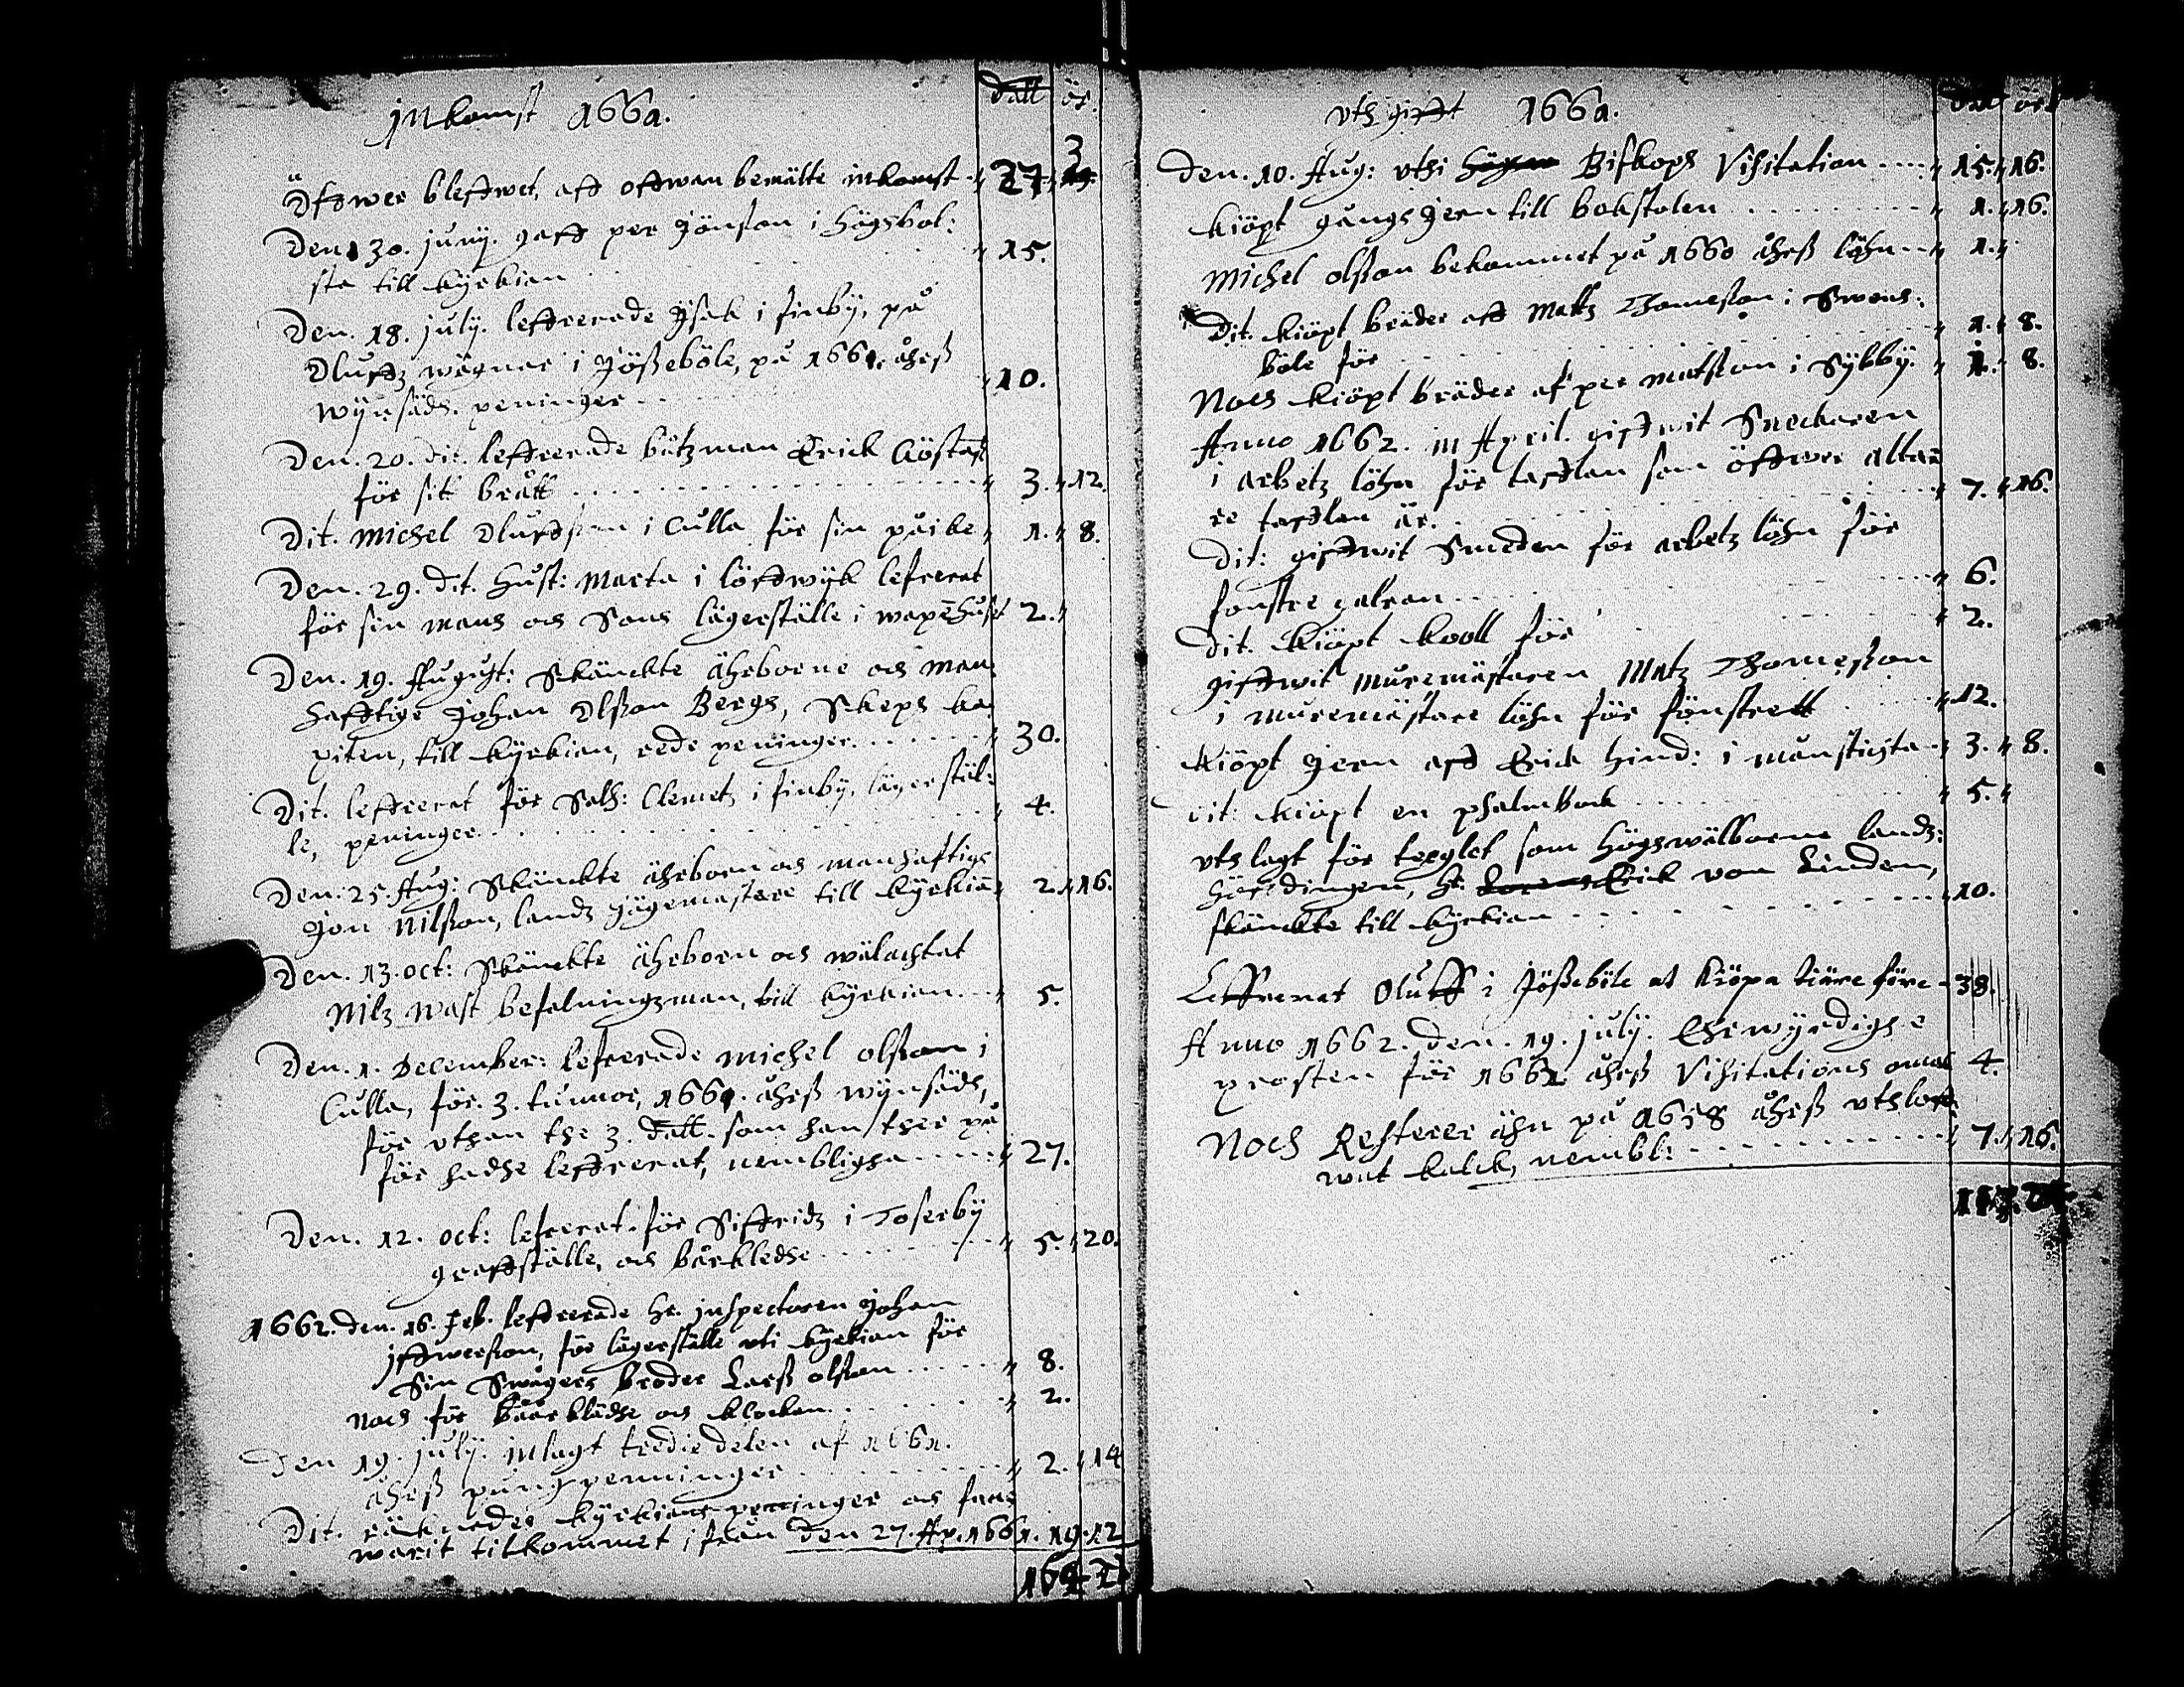 Inkomst 1661.
Dall ör.
Öfwer bleffwet, aff offwan bemälte inkomst 27 3
Den 30. Junij. gaff per Jönßon i Högsbol:
sta till kyrkian 15.
Den. 18. July. leffrerade Isak i finby, på
Oluffz wägnar i Jößeböle, på 1661. åhrß
wijnsäds. peninger 10.
Den. 20. dit. leffrerade båtzman Erick
för sit brått 3. 12.
Dit. Michel Oluffson i Culla för sin 1. 8.
Den. 29. dit. Hust: Marta i löffwijk lefrerat
för sin mans och Sons lägerställe i wapēhuset 2.
Den. 19. Augugt: Skänckte ähreborne och man
hafftige Johan Olßon Bergs, Skeps ka
piten, till kyrkian, rede peninger 30.
Dit. leffrerat för Salh: Clemetz i finby, lägerstäl:
le, peninger 4.
Den: 25. Aug: Skänckte ähreborn och manhaftige
Jon Nilßon, landz Jägemästere till kyrkiā 2. 16.
Den. 13. oct: Skänckte ähreboren och wälachtat
Nilz Wast befalningzman, till kyrkian 5.
Den. 1. December: lefrerade Michel olßon i
Culla, för. 3. tunnor, 1661. åhrß wijnsäds,
för uthan the 3. Dall. som han ther på
för hadhe leffrerat, nembligha 27.
Den. 12. oct: lefrerat för Siffridz i Toserby
graffställe, och bårkledhe 5. 20.
1662. den. 16. Feb. leffrerade Hr. Inspectoren Johan
Iffwerßon, för lägerställe uti kyrkian för
Sin Swågers broder Larß olßon 8.
Noch för båårklädhe och klockan 2.
Den 19. July. Inlagt tredie delen af 1661.
åhrß pungpenninger 2. 14
Dit. räknades kyrkians penninger och fans
warit tilkommet ifrån den 27. Ap. 1661. 19. 12
uthgifft 1661.
Dall ör
Den. 10. Aug: uthi Biskops Visitation 15. 16.
kiöpt gångsjern till bokstolen 1. 16.
Michel olßon bekommet på 1660 åhrß löhn 1.
Dit. kiöpt bräder aff Mattz Thomeßon i Swens:
böle för 1. 8.
Noch kiöpt bräder af per matßon i Sybby. 1. 8.
Anno 1662. in April. giffwit Sneckaren
i arbetz löhn för tafflan som öffwer altar̄
re tafflan är. 7. 16.
Dit: giffwit Smeden för arbetz löhn för
fönstre galran 6.
Dit. kiöpt kooll för 2.
giffwit muremästaren Matz Thomeßon
i muremästare löhn för fönstrett 12.
Kiöpt Jern aff Erick Hind: i 3. 8.
dit: kiöpt en psalmbock 5.
uthlagt för teyglet som Högwälborne landz:
höffdingen, Hr. Erick von Linden,
skänckte till kyrkian 10.
Leffrerat Oluff i Jößeböle at kiöpa tiäre före 38.
Anno 1662. den. 19. July. Ehrwyrdighe
prosten för 1662 åhrß Visitations omak 4.
Noch Resterer ähn på 1658 åhrß uthloff
wat kalck, nembl: 7. 16.